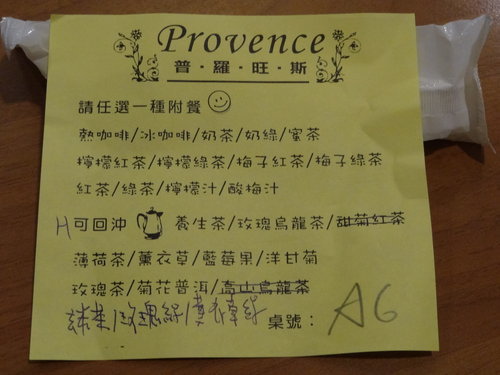 Provence
普・羅・旺・斯
請任選一種附餐
熱咖啡/冰咖啡/奶茶/奶綠/蜜茶
檸檬紅茶/檸檬綠茶/梅子紅茶/梅子綠茶
紅茶/綠茶/檸檬汁/酸梅汁
H可回沖 養生茶/玫瑰烏龍茶/甜菊紅茶
薄荷茶/薰衣草/藍莓果/洋甘菊
玫瑰茶/菊花普洱/高山烏龍茶
抹茶/玫瑰綠/薰衣草綠
桌號： A6